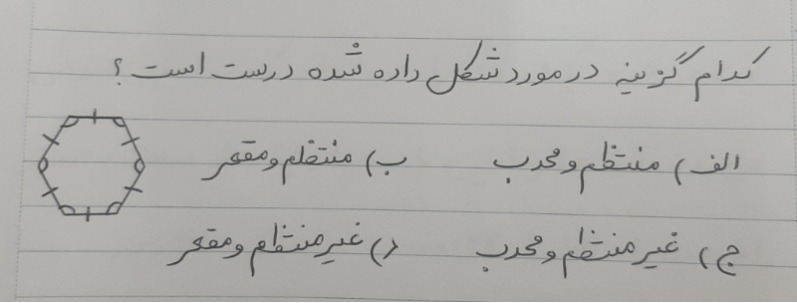 کدام گزینه در مورد شکل داده شده درست است؟
الف) منتظم و محدب ب) منتظم و مقعر
ج) غیر منتظم و محدب د) غیر منتظم و مقعر